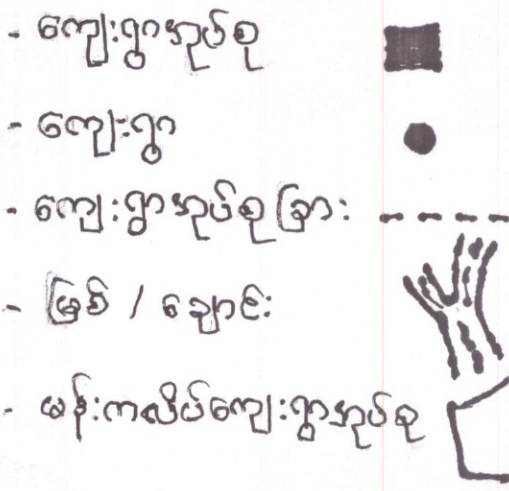 - ကျေးရွာအုပ်စု
- ကျေးရွာ
- ကျေးရွာအုပ်စု ခြား
- မြစ် / ချောင်း
- ဖန်းကလိပ်ကျေးရွာအုပ်စု